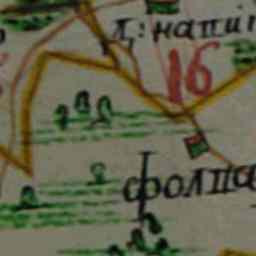 д: напи
16
фолпа